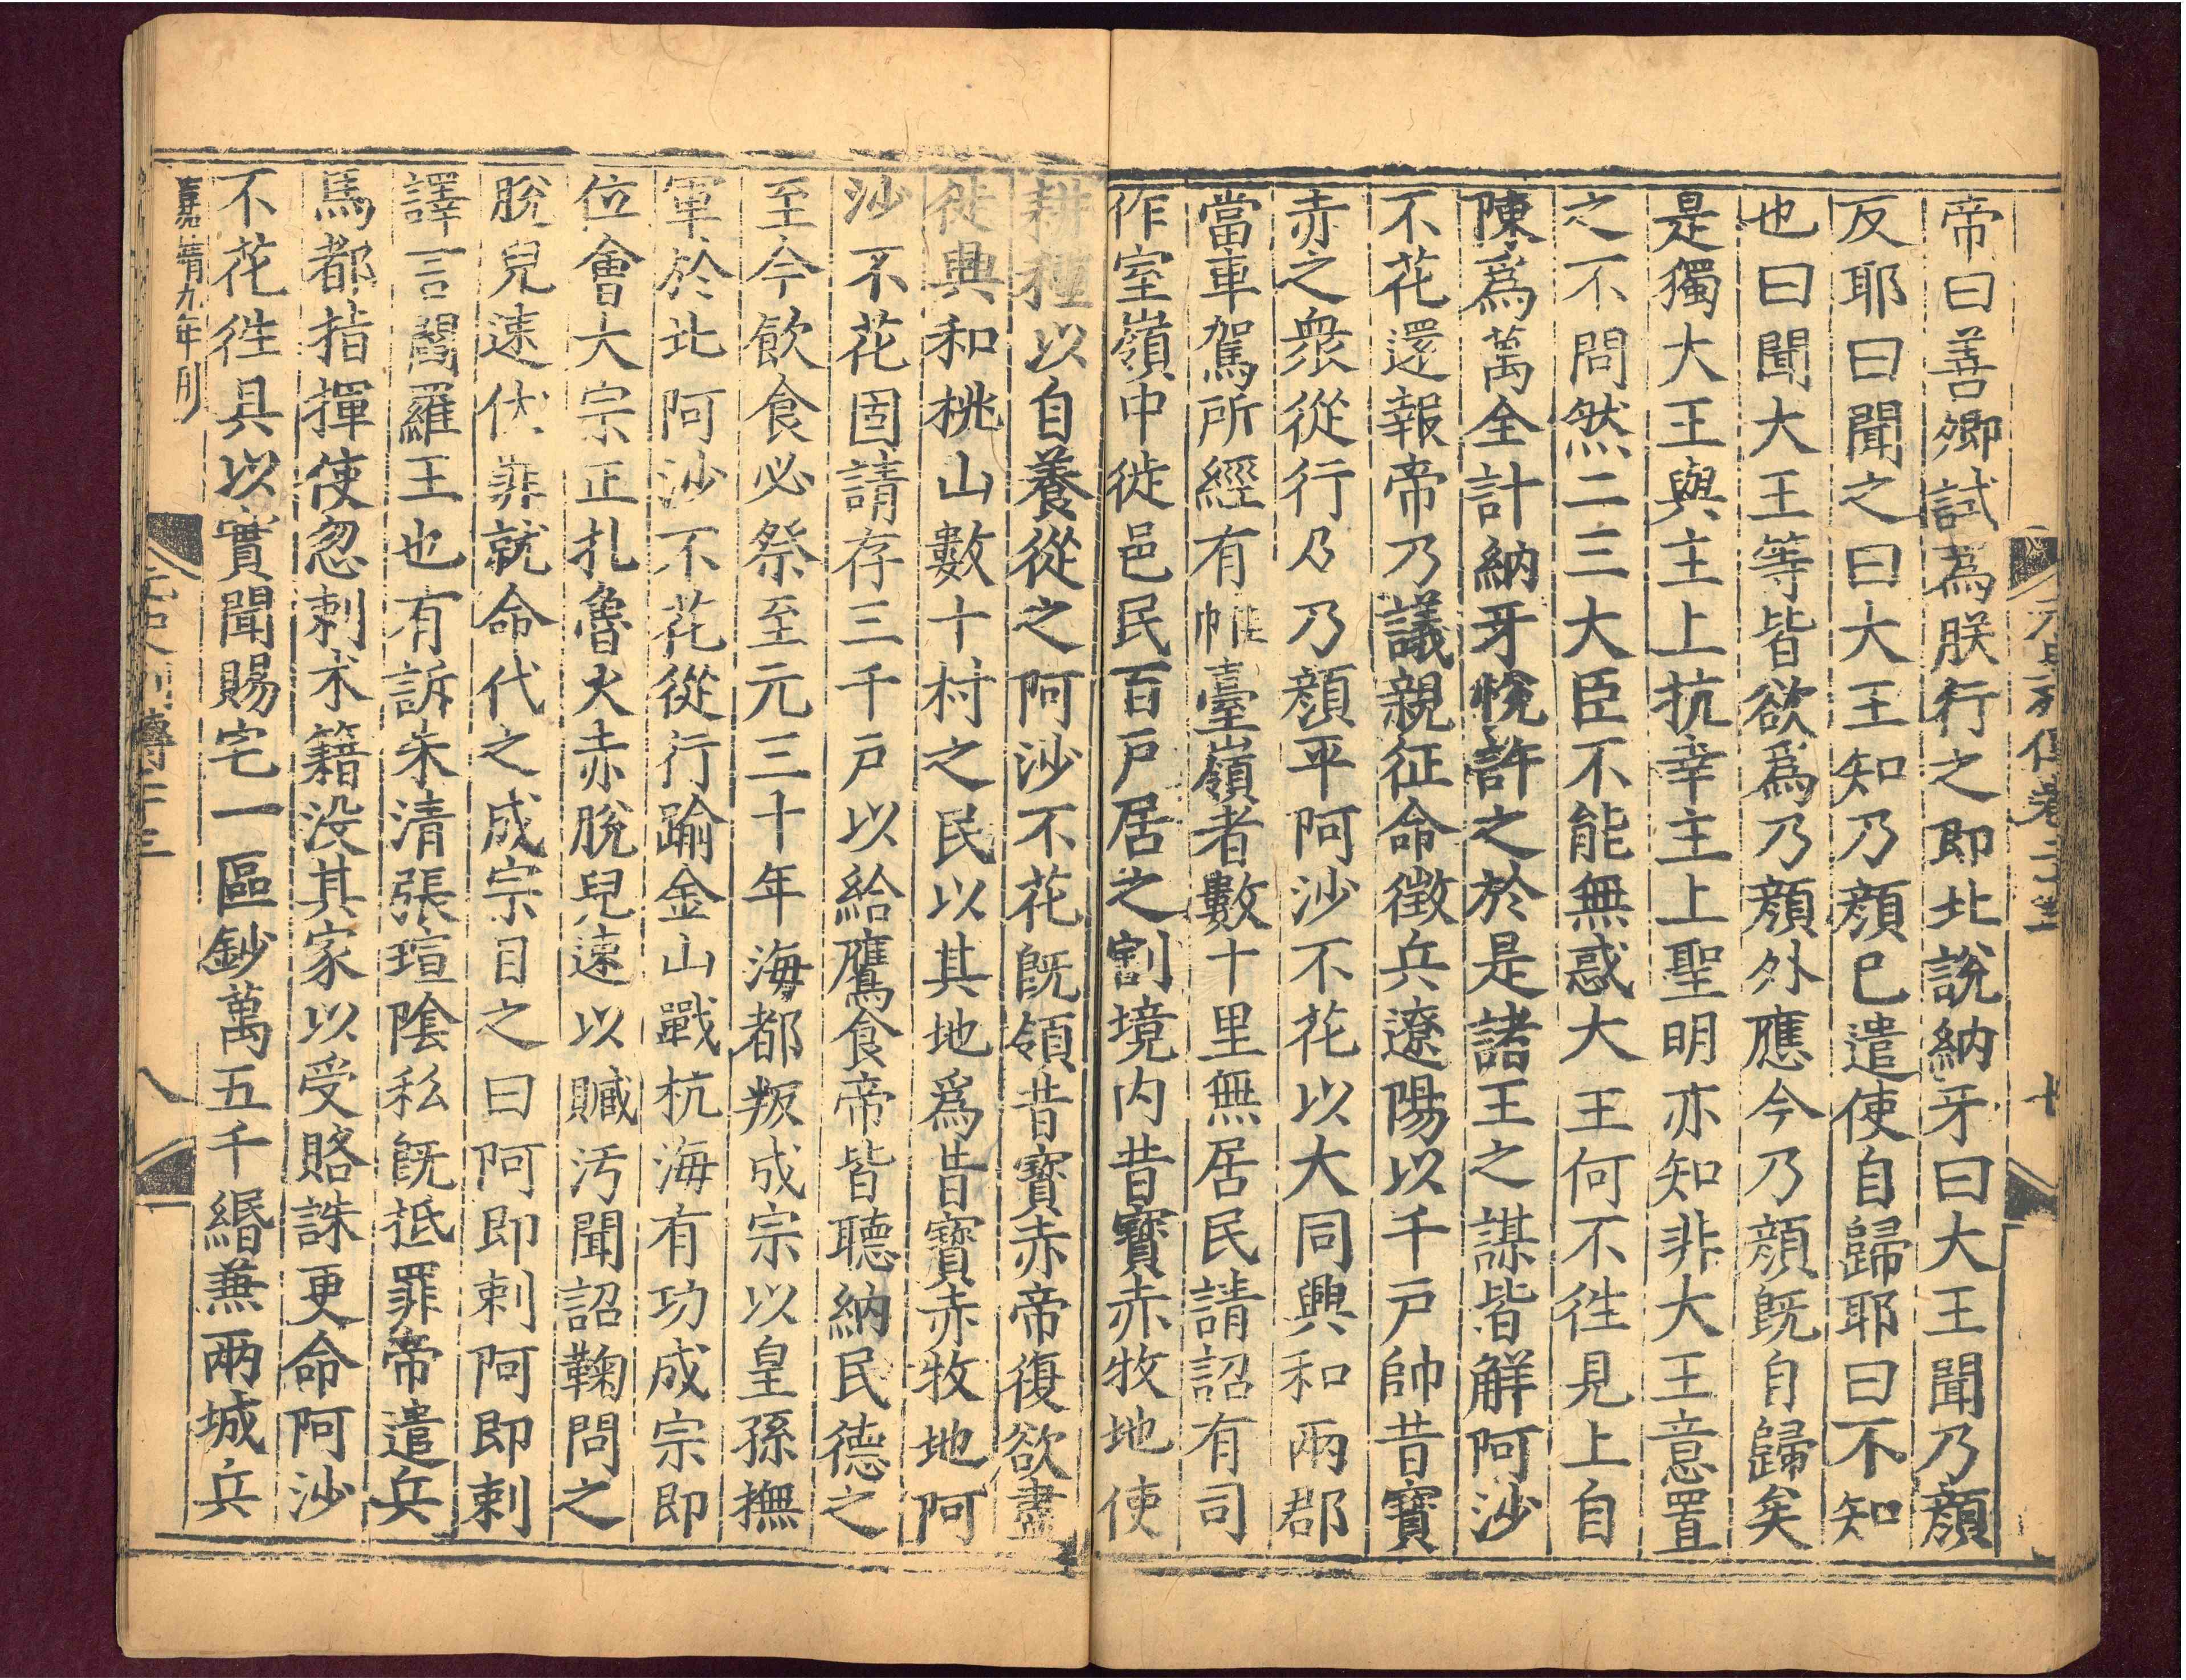 帝曰善卿試爲朕行之即北說納牙曰大王聞乃顏
反耶曰聞之曰大王知乃顏已遣使自歸耶曰不知
也曰聞大王等皆欲爲乃顏外應今乃顏旣自歸矣
是獨大王與主上抗幸主上聖明亦知非大王意置
之不問然二三大臣不能無惑大王何不徃見上自
陳爲萬全計納牙悅許之於是諸王之謀皆解阿沙
不花還報帝乃議親征命徴兵遼陽以千戸帥昔寶
赤之衆從行及乃顏平阿沙不花以大同興和兩郡
當車駕所經有帷臺嶺者數十里無居民請詔有司
作室嶺中徙邑民百戸居之割境内昔寶赤牧地使
耕種以自養從之阿沙不花旣領昔寶赤帝復欲盡
徙興和桃山數十村之民以其地爲昔寶赤牧地阿
沙不花固請存三千戸以給鷹食帝皆聽納民德之
至今飲食必祭至元三十年海都叛成宗以皇孫撫
軍於北阿沙不花從行踰金山戰杭海有功成宗即
位會大宗正扎魯火赤脫兒速以贓汚聞詔鞠問之
脫兒速伏罪就命代之成宗目之曰阿即剌阿即剌
譯言閻羅王也有訴朱清張瑄隂私旣抵罪帝遣兵
馬都指揮使忽剌朮籍没其家以受賂誅更命阿沙
不花徃具以實聞賜宅一區鈔萬五千緡兼兩城兵
嘉靖九年刊